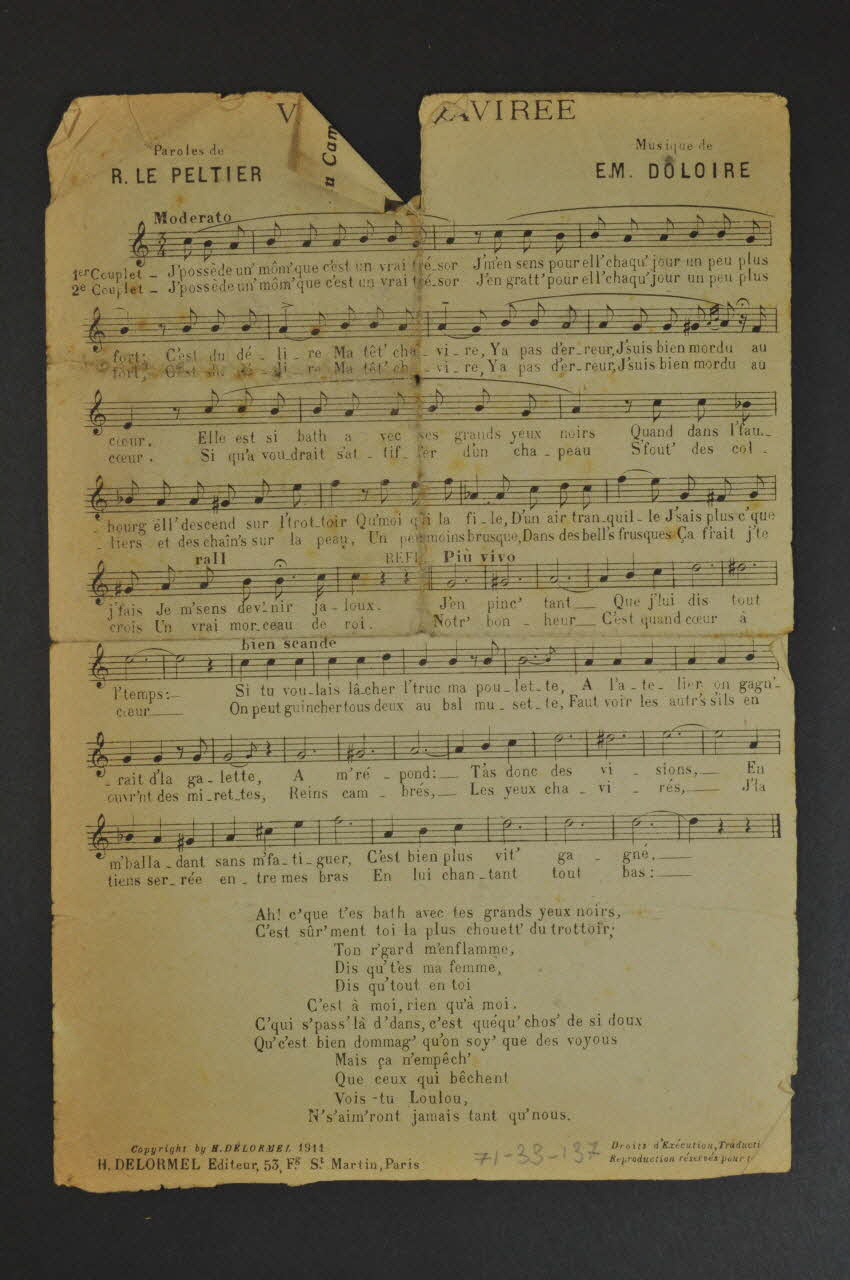 V AVIREE
u Cam
Paroles de
R. LE PELTIER
Musique de
EM. DOLOIRE
Moderato
1er Couplet _ J'possède un' môm' que c'est un vrai tré_sor J'm'en sens pour ell' chaqu' jour un peu plus
2e Couplet _ J'possède un' môm' que c'est un vrai tré_sor J'en gratt' pour ell' chaqu' jour un peu plus
fort; C'est du dé _ li _ re Ma têt' cha_vi _ re, Y a pas d'er_reur, J'suis bien mordu au
fort, C'est du dé _ li _ re Ma têt' cha_vi _ re, Y a pas d'er_reur, J'suis bien mordu au
cœur. Elle est si bath a vec ses grands yeux noirs Quand dans l'fau_
cœur. Si qu'a vou_drait s'at _ tif _ fer d'un cha _ peau S'fout' des col _
bourg ell' descend sur l'trot_toir Qu'moi qui la fi_le, D'un air tran_quil_le J'sais plus c'que
liers et des chaîn's sur la peau, Un peu moins brusque, Dans des bell's frusques Ça f'rait j'te
rall REFR. Più vivo
j'fais Je m'sens dev'nir ja_loux. J'en pinc' tant__ Que j'lui dis tout
crois Un vrai mor_ceau de roi. Notr' bon _ heur__ C'est quand cœur à
bien scandé
l'temps:__ Si tu vou_lais lâ_cher l'truc ma pou_let_te, A l'a_te_lier on gagn'_
cœur___ On peut guincher tous deux au bal mu_set_te, Faut voir les autr's s'ils en
_ rait d'la ga_lette, A m'ré_pond:__ T'as donc des vi _ sions,__ En
ouvr'nt des mi_ret_tes, Reins cam _ brés,__ Les yeux cha _ vi _ rés,__ J'la
m'balla_dant sans m'fa_ti_guer, C'est bien plus vit' ga _ gné.___
tiens ser_rée en_tre mes bras En lui chan_tant tout bas:___
Ah! c'que t'es bath avec tes grands yeux noirs,
C'est sûr'ment toi la plus chouett' du trottoir;
Ton r'gard m'enflamme,
Dis qu't'es ma femme,
Dis qu'tout en toi
C'est à moi, rien qu'à moi.
C'qui s'pass' là d'dans, c'est quéqu' chos' de si doux
Qu'c'est bien dommag' qu'on soy' que des voyous
Mais ça n'empêch'
Que ceux qui bêchent
Vois-tu Loulou,
N's'aim'ront jamais tant qu'nous.
Copyright by H. DELORMEL 1911
H. DELORMEL Editeur, 53, Fg St Martin, Paris
71-33-137
Droits d'Exécution, Traducti
Reproduction réservés pour t